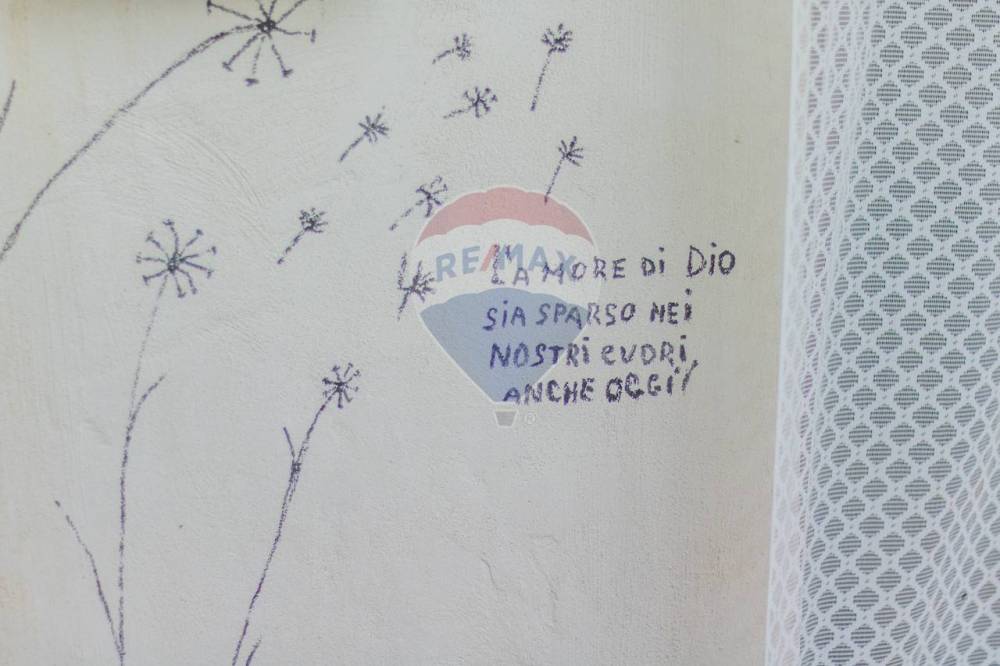 RE/MAX
L'AMORE Di DiO
SiA SPARSO NEi
NOSTRi CUORi,
ANCHE OGGi!